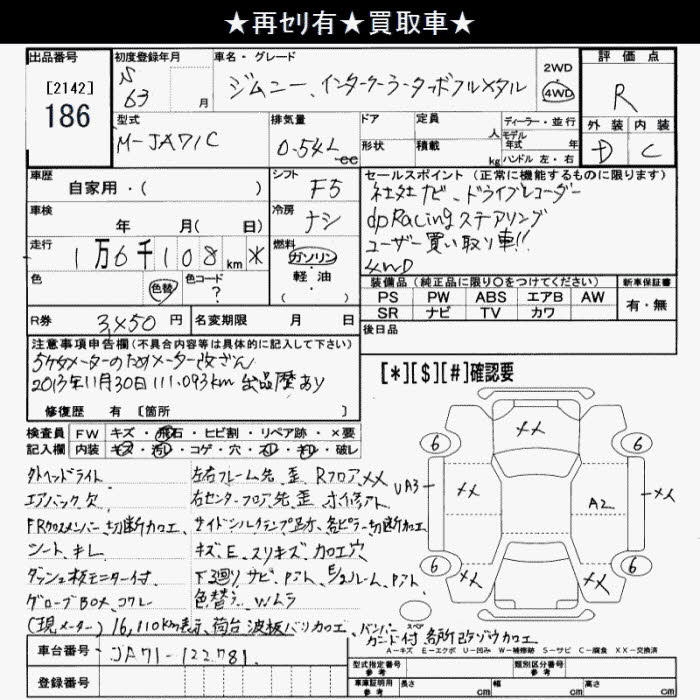 ★再セリ有★買取車★
出品番号
[2142]
186
初度登録年月
S
63 月
車名・グレード
ジムニー、インタークーラーターボフルメタル
2WD
4WD
評価点
R
外装 内装
D C
型式
M-JA71C
排気量
0.54L
cc
ドア
形状
定員 人
積載 kg
ディーラー・並行
モデル
年式 年
ハンドル 左・右
車歴
自家用・( )
シフト
F5
車検
年 月( 日)
冷房
ナシ
走行
1万6千108km *
燃料
ガソリン
軽油
( )
色
色替
色コード
?
セールスポイント(正常に機能するものに限ります)
社外ナビ、ドライブレコーダー
dpRacingステアリング
ユーザー買い取り車!!
4WD
装備品(純正品に限り○をつけてください)
PS PW ABS エアB AW
SR ナビ TV カワ
新車保証書
有・無
R券 円
名変期限 月 日
後日品
注意事項申告欄(不具合内容等は具体的に記入して下さい)
5ケタメーターのためメーター改ざん
2013年11月30日 111.093km 出品歴あり
修復歴 有 [箇所 ]
[*][$][#]確認要
検査員 FW キズ・飛石・ヒビ割・リペア跡・×要
記入欄 内装 キズ・汚レ・コゲ・穴・スレ・キレ・破レ
外ヘッドライト
左右フレーム先、歪 RフロアXX
エアバック欠
右センターフロア、先、歪
FRクロスメンバー、切断加工、サイドシルクランプ跡、各ピラー切断加工
シート、キレ
キズ、E、スリキズ、加工穴
ダッシュ板モニター付
下廻り サビ、Pアト、E/ルーム、Pアト
グローブBOX、コワレ
色替え、Wムラ
(現メーター) 16,110km表示、荷台波板バリ加工、バンパーガード付 各所改ゾウ加工
6 XX 6
UA3 XX A2 XX
6 XX XX 6
スペア
A−キズ E−エクボ U−凹み W−補修跡 S−サビ C−腐食 XX−交換済
車台番号 JA71-122781
登録番号
型式指定番号
参考
類別区分番号
参考
車庫証明用
参考
長さ cm
幅 cm
高さ cm